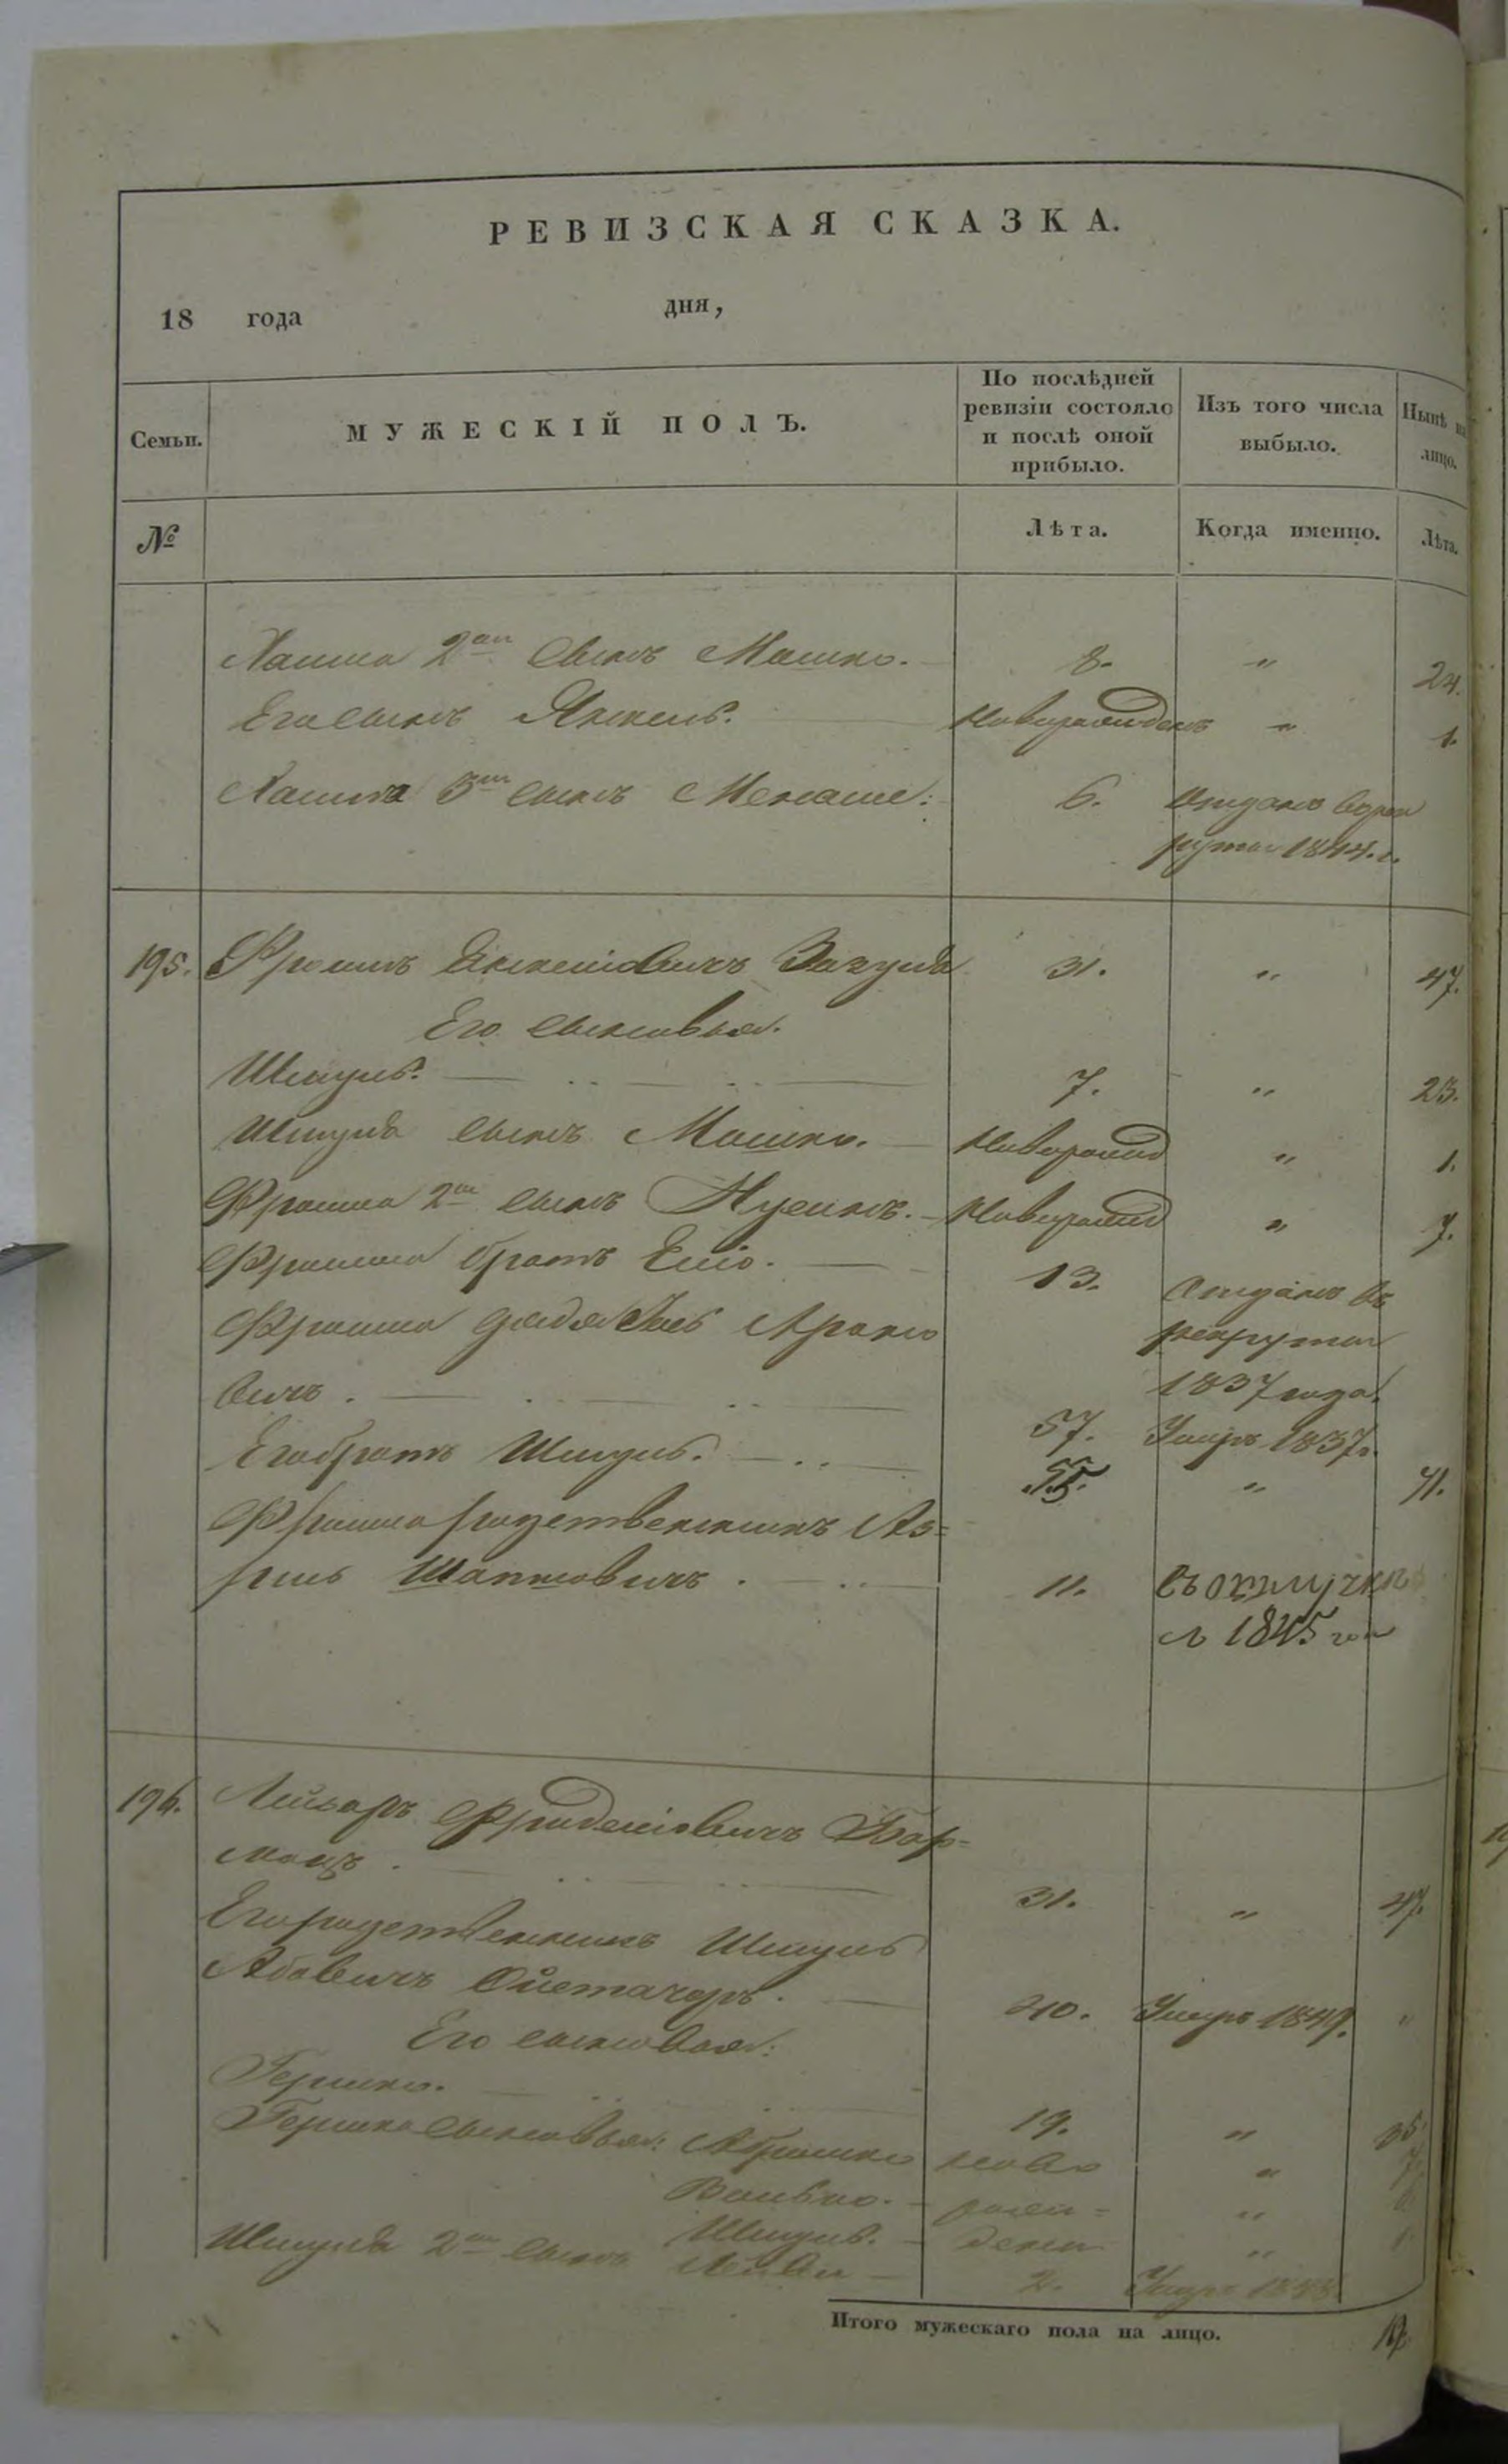 РЕВИЗСКАЯ СКАЗКА.
18 года дня,
Семьи.
МУЖЕСКІЙ ПОЛЪ.
По послѣдней ревизіи состояло и послѣ оной прибыло.
Изъ того числа выбыло.
Нынѣ на лицо.
№
Лѣта.
Когда именно.
Лѣта.
2ой сынъ Мошко. 8. " 24.
Его сынъ Янкель. новорожденъ " 1.
3ій сынъ Менаше: 6. Отданъ в рек
руты 1844.г.
195. Фроимъ Янкеліовичъ 31. " 47.
Его сыновья.
Шмуль. 7. " 23.
Шмуля сынъ Мошко. новорожд " 1.
Фроима 2й сынъ Нусинъ. новорожд " 7.
Фроима братъ Еліо. 13. Отданъ въ
рекруты
1837 года.
Фроима дядя Ароно
вичъ. 57. Умеръ 1837г.
Его братъ Шмуль. 55. " 71.
Фроима родственникъ Аз=
риль Шапшовичъ. 11. Въ отлучкѣ
съ 1845 года
196. Лейзоръ Фриделіовичъ Бар=
мацъ. 31. " 47.
Его родственникъ Шмуль
Абовичъ Ойстачеръ. 40. Умеръ 1849. "
Его сыновья:
Гершко. 19. " 35.
Гершка сыновья: Абрамко ново "
Волько. рож= "
Шмуль. дены "
Шмуля 2й сынъ Лейба 2. Умеръ
Итого мужескаго пола на лицо.